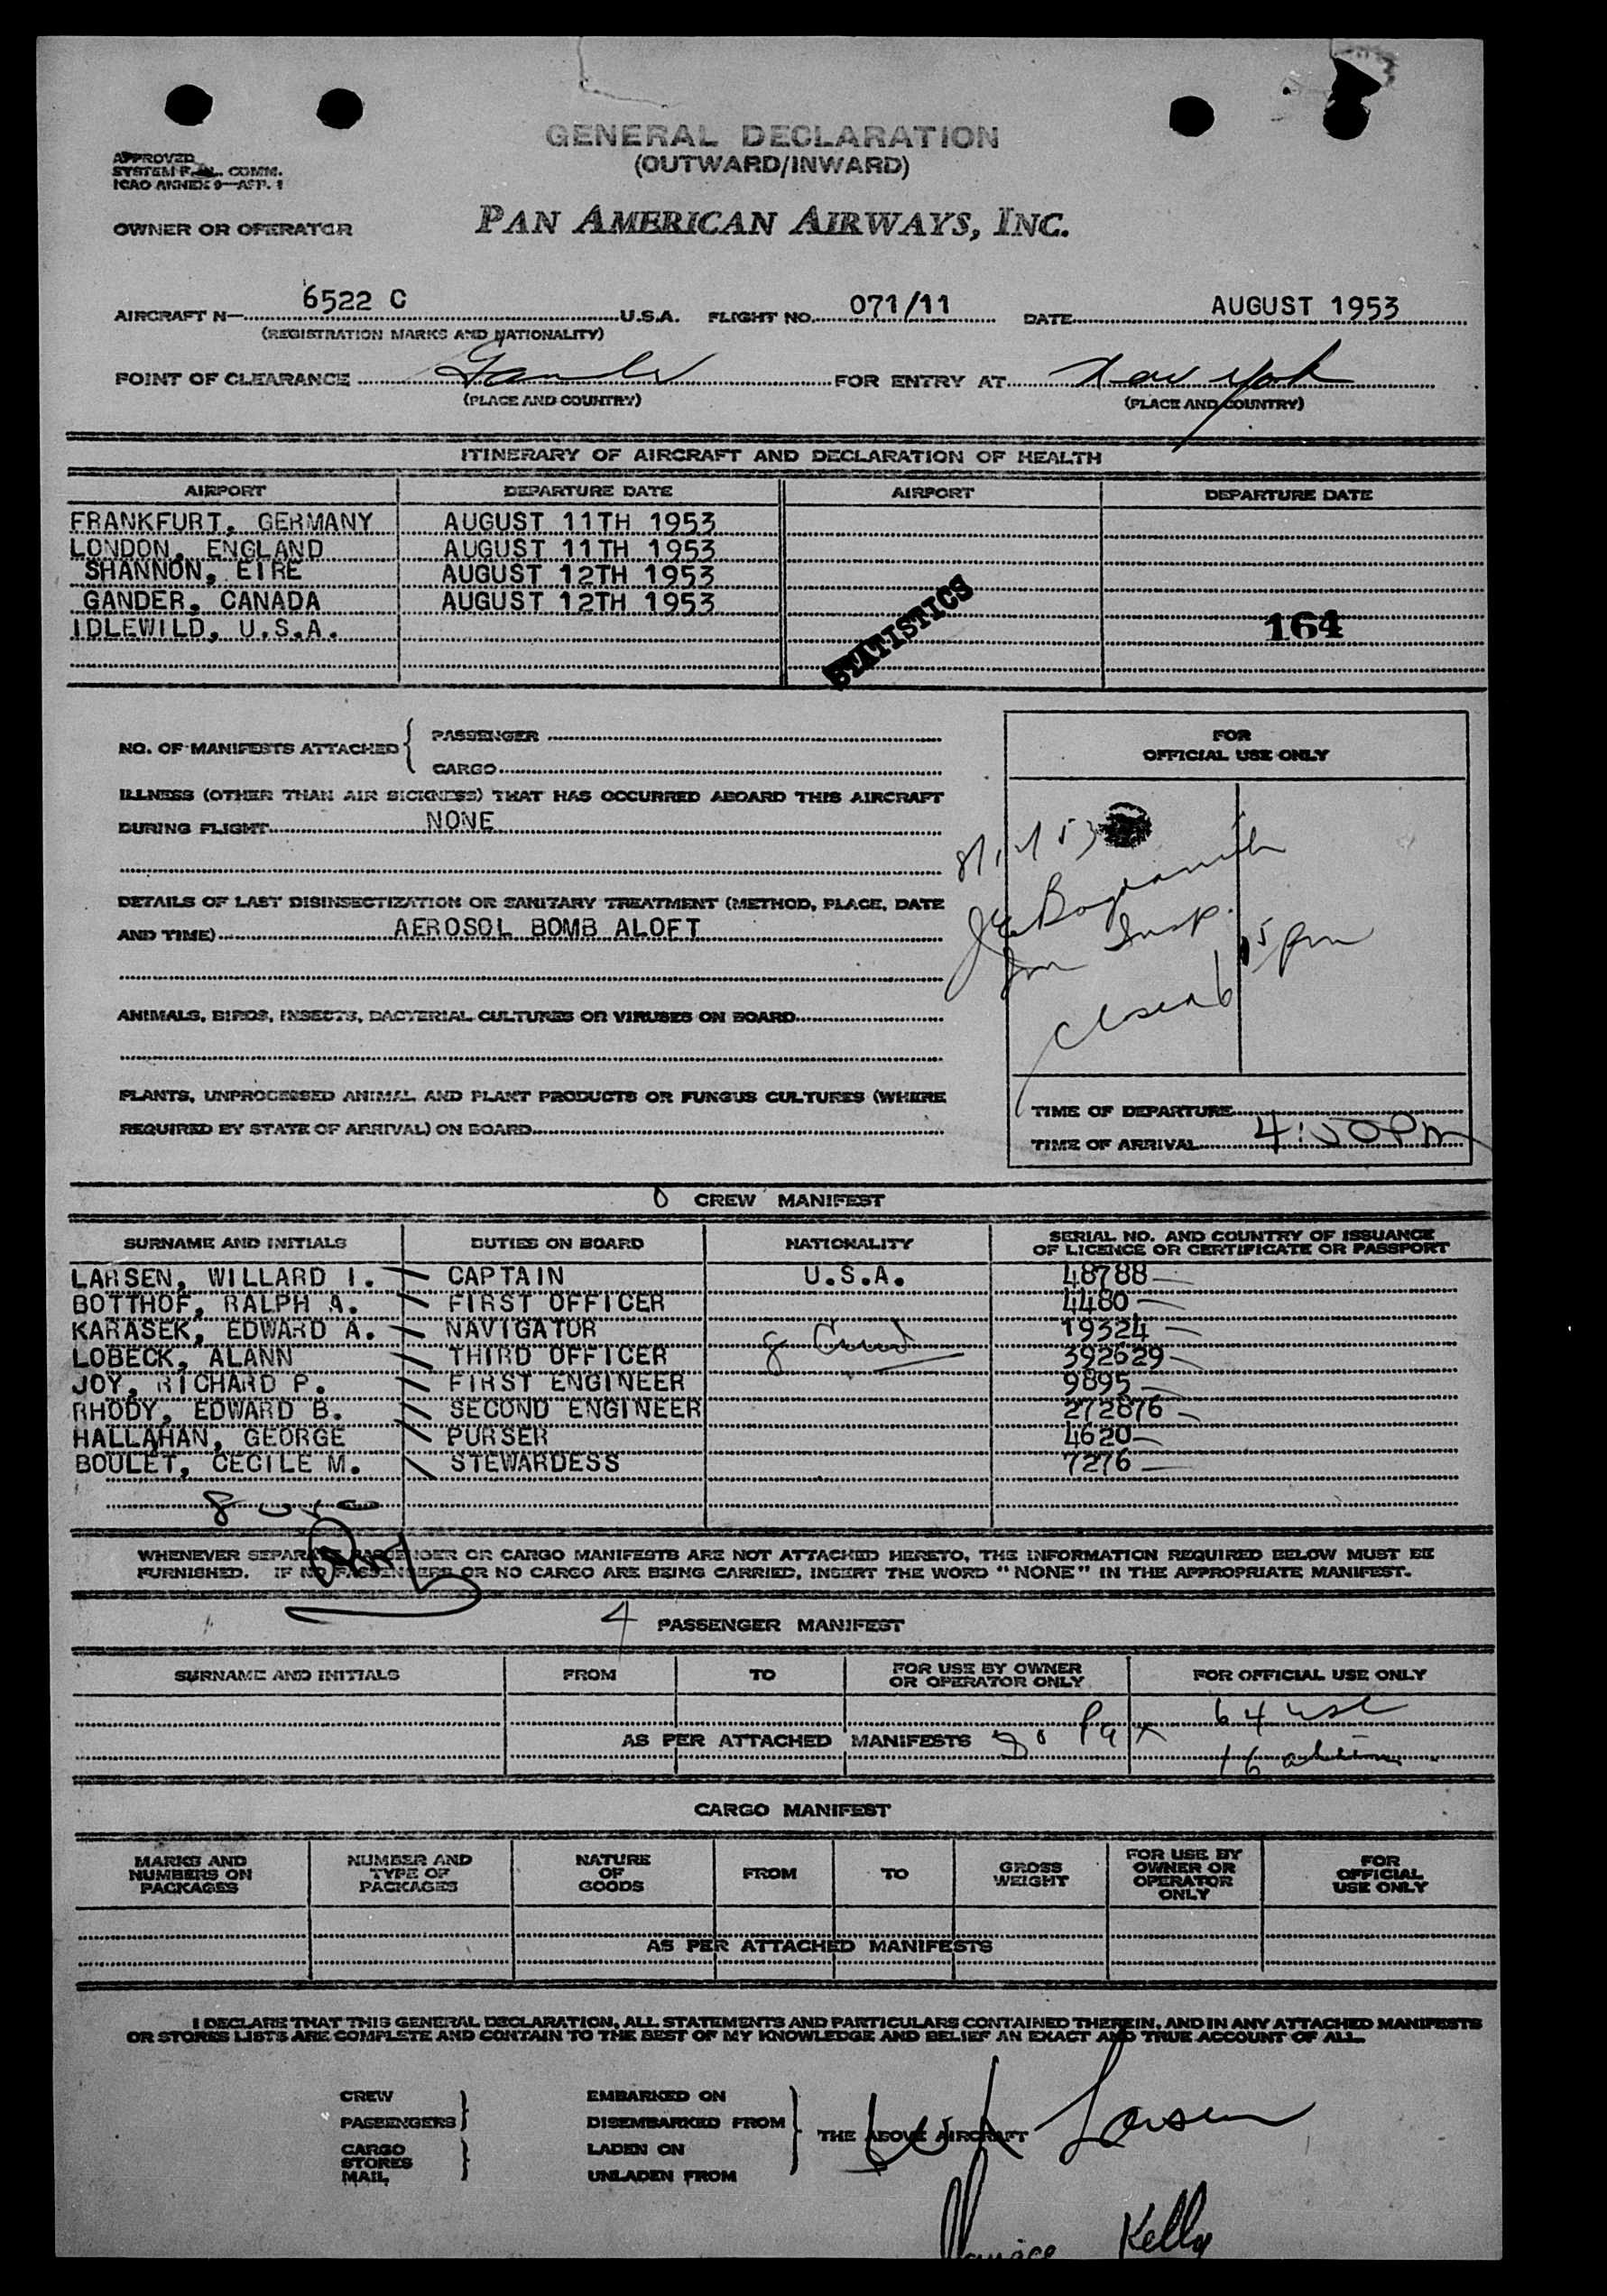 GENERAL DECLARATION
(OUTWARD/INWARD)
APPROVED
SYSTEM F. AL. COMM.
ICAO ANNEX 9—APP. 1
OWNER OR OPERATOR PAN AMERICAN AIRWAYS, INC.
AIRCRAFT N— 6522 C U.S.A. FLIGHT NO. 071/11 DATE AUGUST 1953
(REGISTRATION MARKS AND NATIONALITY)
POINT OF CLEARANCE Gander FOR ENTRY AT New York
(PLACE AND COUNTRY) (PLACE AND COUNTRY)
ITINERARY OF AIRCRAFT AND DECLARATION OF HEALTH
AIRPORT DEPARTURE DATE AIRPORT DEPARTURE DATE
FRANKFURT, GERMANY AUGUST 11TH 1953
LONDON, ENGLAND AUGUST 11TH 1953
SHANNON, EIRE AUGUST 12TH 1953
GANDER, CANADA AUGUST 12TH 1953
IDLEWILD, U.S.A.
STATISTICS
164
NO. OF MANIFESTS ATTACHED { PASSENGER
CARGO
ILLNESS (OTHER THAN AIR SICKNESS) THAT HAS OCCURRED ABOARD THIS AIRCRAFT
DURING FLIGHT NONE
DETAILS OF LAST DISINSECTIZATION OR SANITARY TREATMENT (METHOD, PLACE, DATE
AND TIME) AEROSOL BOMB ALOFT
ANIMALS, BIRDS, INSECTS, BACTERIAL CULTURES OR VIRUSES ON BOARD
PLANTS, UNPROCESSED ANIMAL AND PLANT PRODUCTS OR FUNGUS CULTURES (WHERE
REQUIRED BY STATE OF ARRIVAL) ON BOARD
FOR
OFFICIAL USE ONLY
Imm Insp.
TIME OF DEPARTURE
TIME OF ARRIVAL 4:50 PM
CREW MANIFEST
SURNAME AND INITIALS DUTIES ON BOARD NATIONALITY SERIAL NO. AND COUNTRY OF ISSUANCE
OF LICENCE OR CERTIFICATE OR PASSPORT
LARSEN, WILLARD I. CAPTAIN U.S.A. 48788
BOTTHOF, RALPH A. FIRST OFFICER 4480
KARASEK, EDWARD A. NAVIGATOR 19324
LOBECK, ALANN THIRD OFFICER 392629
JOY, RICHARD P. FIRST ENGINEER 9895
RHODY, EDWARD B. SECOND ENGINEER 272876
HALLAHAN, GEORGE PURSER 4620
BOULET, CECILE M. STEWARDESS 7276
WHENEVER SEPARATE PASSENGER OR CARGO MANIFESTS ARE NOT ATTACHED HERETO, THE INFORMATION REQUIRED BELOW MUST BE
FURNISHED. IF NO PASSENGERS OR NO CARGO ARE BEING CARRIED, INSERT THE WORD "NONE" IN THE APPROPRIATE MANIFEST.
4 PASSENGER MANIFEST
SURNAME AND INITIALS FROM TO FOR USE BY OWNER
OR OPERATOR ONLY FOR OFFICIAL USE ONLY
64 usc
AS PER ATTACHED MANIFESTS 80 Pax
16 aliens
CARGO MANIFEST
MARKS AND
NUMBERS ON
PACKAGES NUMBER AND
TYPE OF
PACKAGES NATURE
OF
GOODS FROM TO GROSS
WEIGHT FOR USE BY
OWNER OR
OPERATOR
ONLY FOR
OFFICIAL
USE ONLY
AS PER ATTACHED MANIFESTS
I DECLARE THAT THIS GENERAL DECLARATION, ALL STATEMENTS AND PARTICULARS CONTAINED THEREIN, AND IN ANY ATTACHED MANIFESTS
OR STORES LISTS ARE COMPLETE AND CONTAIN TO THE BEST OF MY KNOWLEDGE AND BELIEF AN EXACT AND TRUE ACCOUNT OF ALL.
CREW EMBARKED ON
PASSENGERS DISEMBARKED FROM
THE ABOVE AIRCRAFT Larsen
CARGO LADEN ON
STORES
MAIL UNLADEN FROM
Kelly